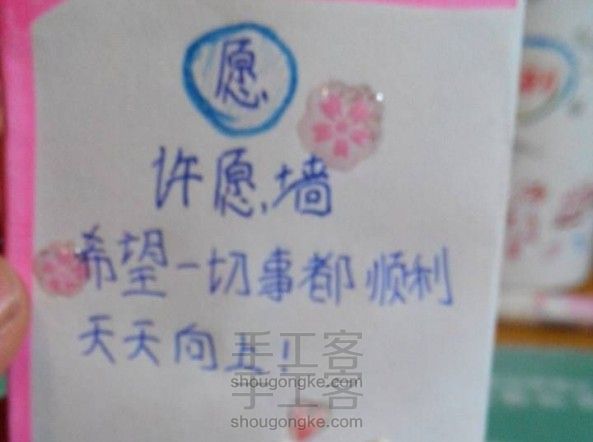 愿
许愿墙
希望一切事都顺利
天天向上!
手工客
shougongke.com
手工客
shougongke.com